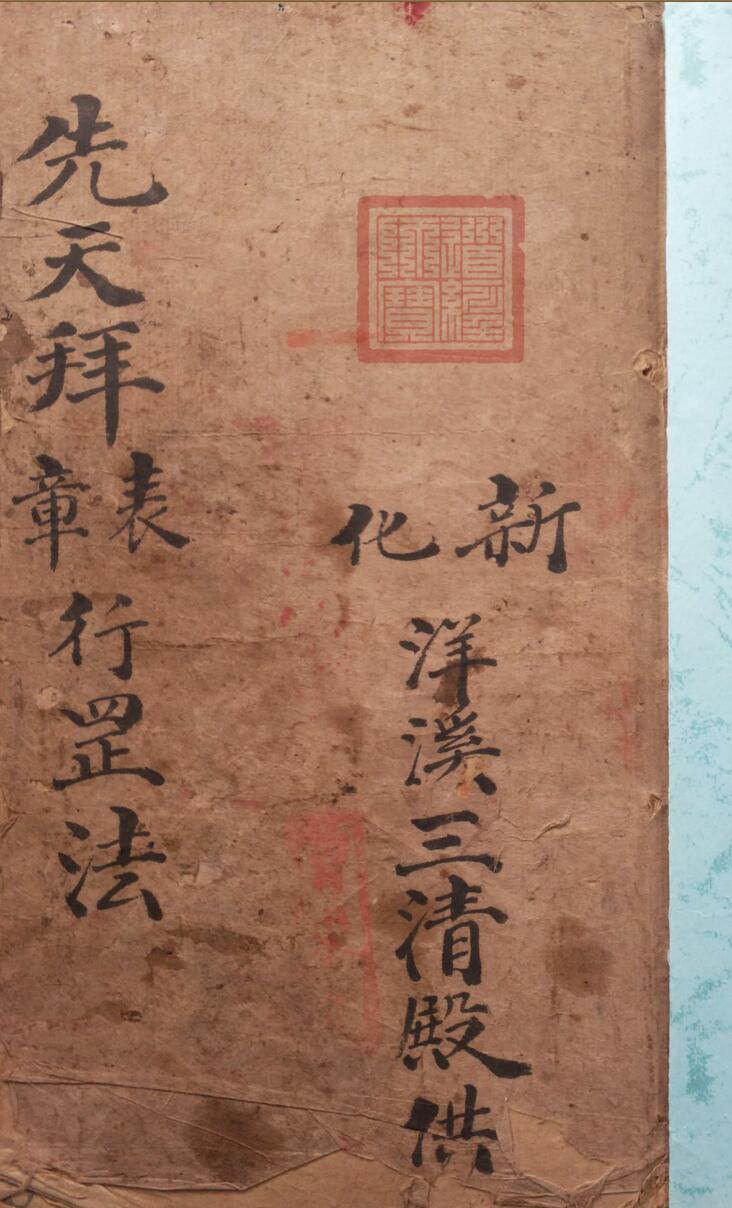 新化
洋溪三清殿供
先天拜表章行罡法
道經師寶